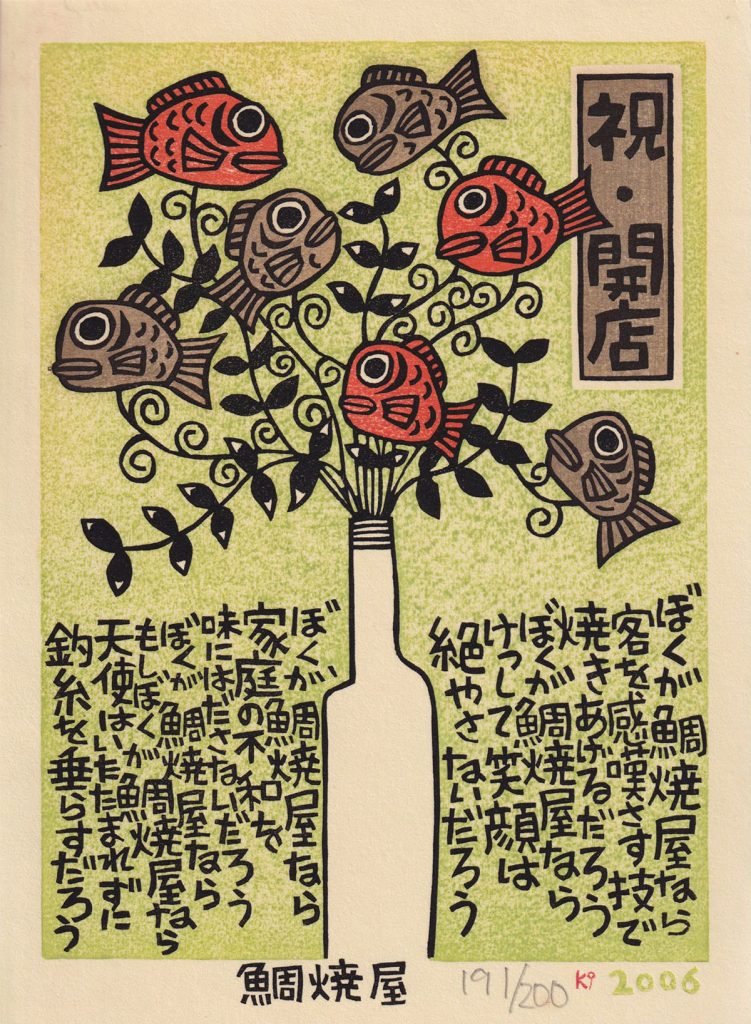 祝・開店
ぼくが鯛焼屋なら
客を感嘆さす技で
焼きあげるだろう
ぼくが鯛焼屋なら
けっして笑顔は
絶やさないだろう
ぼくが鯛焼屋なら
家庭の不和を
味にはださないだろう
ぼくが鯛焼屋なら
もしぼくが鯛焼屋なら
天使はいたたまれずに
釣糸を垂らすだろう
鯛焼屋
191/200
Ki
2006